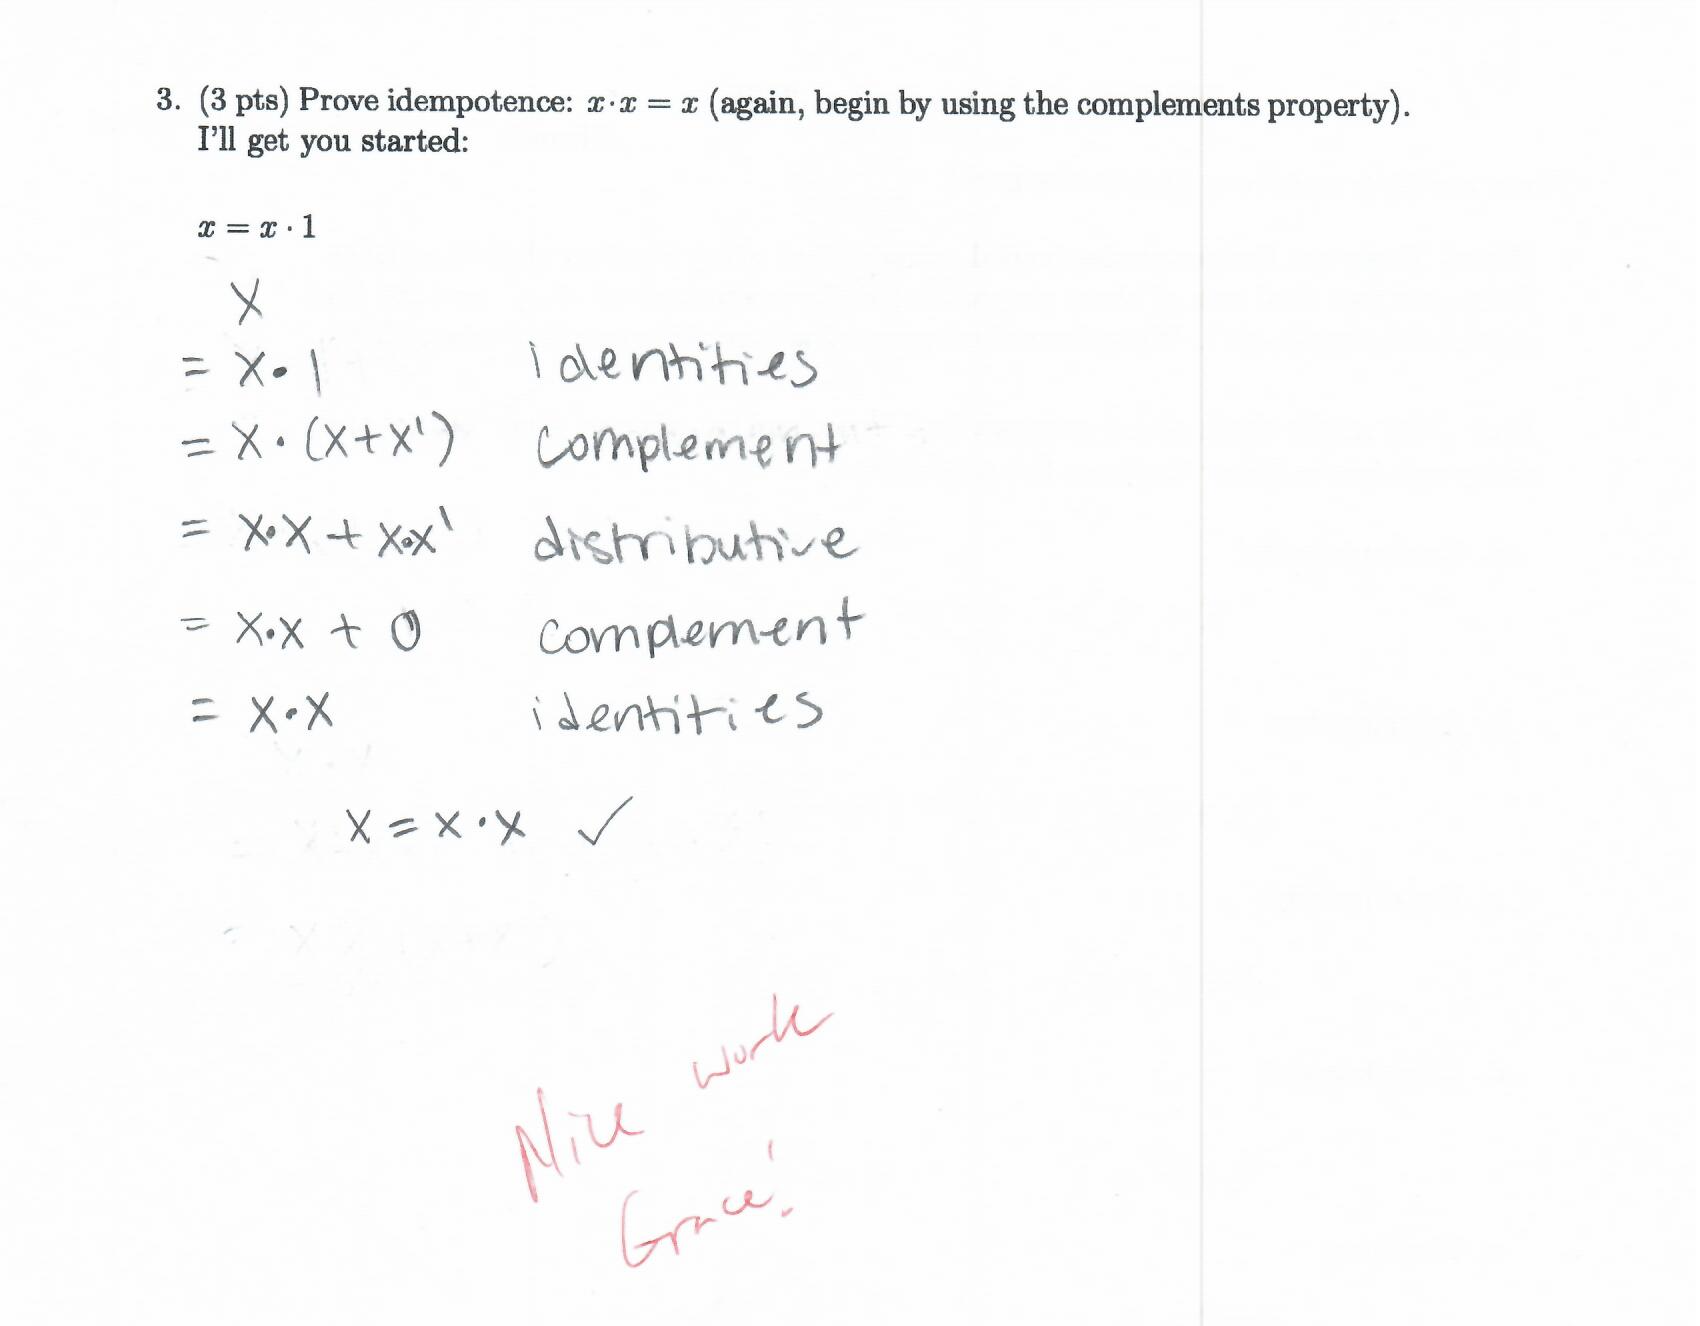 3. (3 pts) Prove idempotence: x·x = x (again, begin by using the complements property).
I'll get you started:
x = x · 1
X
= X·1 identities
= X·(X+X') complement
= X·X + X·X' distributive
= X·X + 0 complement
= X·X identities
X = X·X ✓
Nice work
Grace!